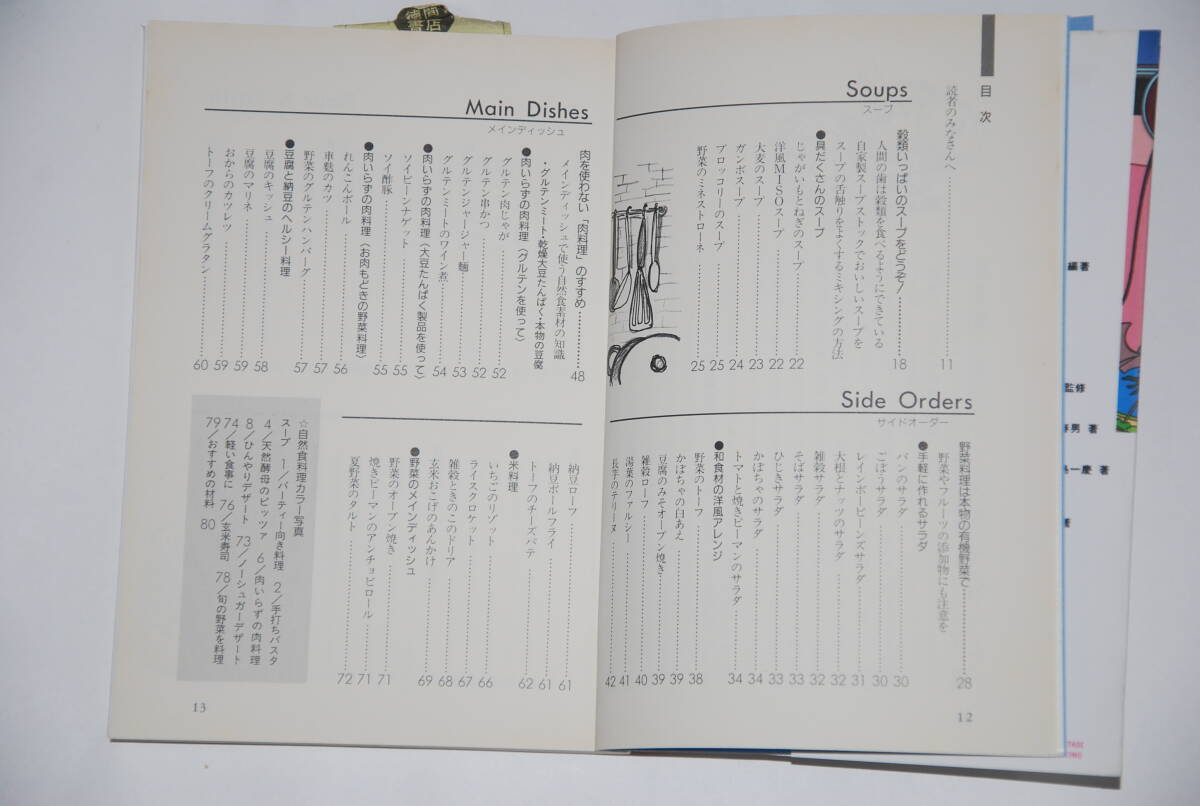 目次
読者のみなさんへ……11
Soups
スープ
穀類いっぱいのスープをどうぞ！……18
人間の歯は穀類を食べるようにできている
自家製スープストックでおいしいスープを
スープの舌触りをよくするミキシングの方法
●具だくさんのスープ
じゃがいもとねぎのスープ……22
洋風MISOスープ……22
大麦のスープ……23
ガンボスープ……24
ブロッコリーのスープ……25
野菜のミネストローネ……25
Side Orders
サイドオーダー
野菜料理は本物の有機野菜で……28
野菜やフルーツの添加物にも注意を
●手軽に作れるサラダ
パンのサラダ……30
ごぼうサラダ……30
レインボービーンズサラダ……31
大根とナッツのサラダ……32
雑穀サラダ……32
そばサラダ……33
ひじきサラダ……33
かぼちゃのサラダ……34
トマトと焼きピーマンのサラダ……34
●和食材の洋風アレンジ
野菜のトーフ……38
かぼちゃの白あえ……39
豆腐のみそオーブン焼き……39
雑穀ローフ……40
湯葉のファルシー……41
長芋のテリーヌ……42
12
Main Dishes
メインディッシュ
肉を使わない「肉料理」のすすめ……48
メインディッシュで使う自然食素材の知識
・グルテンミート・乾燥大豆たんぱく・本物の豆腐
●肉いらずの肉料理〈グルテンを使って〉
グルテン肉じゃが……52
グルテン串かつ……52
グルテンジャージャー麺……53
グルテンミートのワイン煮……54
●肉いらずの肉料理〈大豆たんぱく製品を使って〉
ソイビーンナゲット……55
ソイ酢豚……55
●肉いらずの肉料理〈お肉もどきの野菜料理〉
れんこんボール……56
車麩のカツ……57
野菜のグルテンハンバーグ……57
●豆腐と納豆のヘルシー料理
豆腐のキッシュ……58
豆腐のマリネ……59
おからのカツレツ……59
トーフのクリームグラタン……60
納豆ローフ……61
納豆ボールフライ……61
トーフのチーズパテ……62
●米料理
いちごのリゾット……66
ライスクロケット……67
雑穀ときのこのドリア……68
玄米おこげのあんかけ……69
●野菜のメインディッシュ
野菜のオーブン焼き……71
焼きピーマンのアンチョビロール……71
夏野菜のタルト……72
☆自然食料理カラー写真
スープ 1／パーティー向き料理 2／手打ちパスタ
4／天然酵母のピッツァ 6／肉いらずの肉料理
8／ひんやりデザート 73／ノーシュガーデザート
74／軽い食事に 76／玄米寿司 78／旬の野菜を料理
79／おすすめの材料 80
13
編著
監修
男 著
一慶 著
著
書店